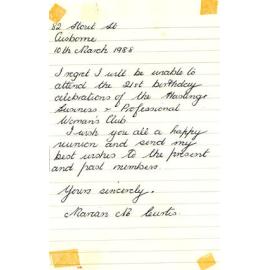 82 Stout St
Gisborne
10th March 1988
I regret I will be unable to
attend the 21st birthday
celebrations of the Hastings
Business & Professional
Woman's Club.
I wish you all a happy
reunion and send my
best wishes to the present
and past members.
Yours sincerely,
Marian Mc Curtis.